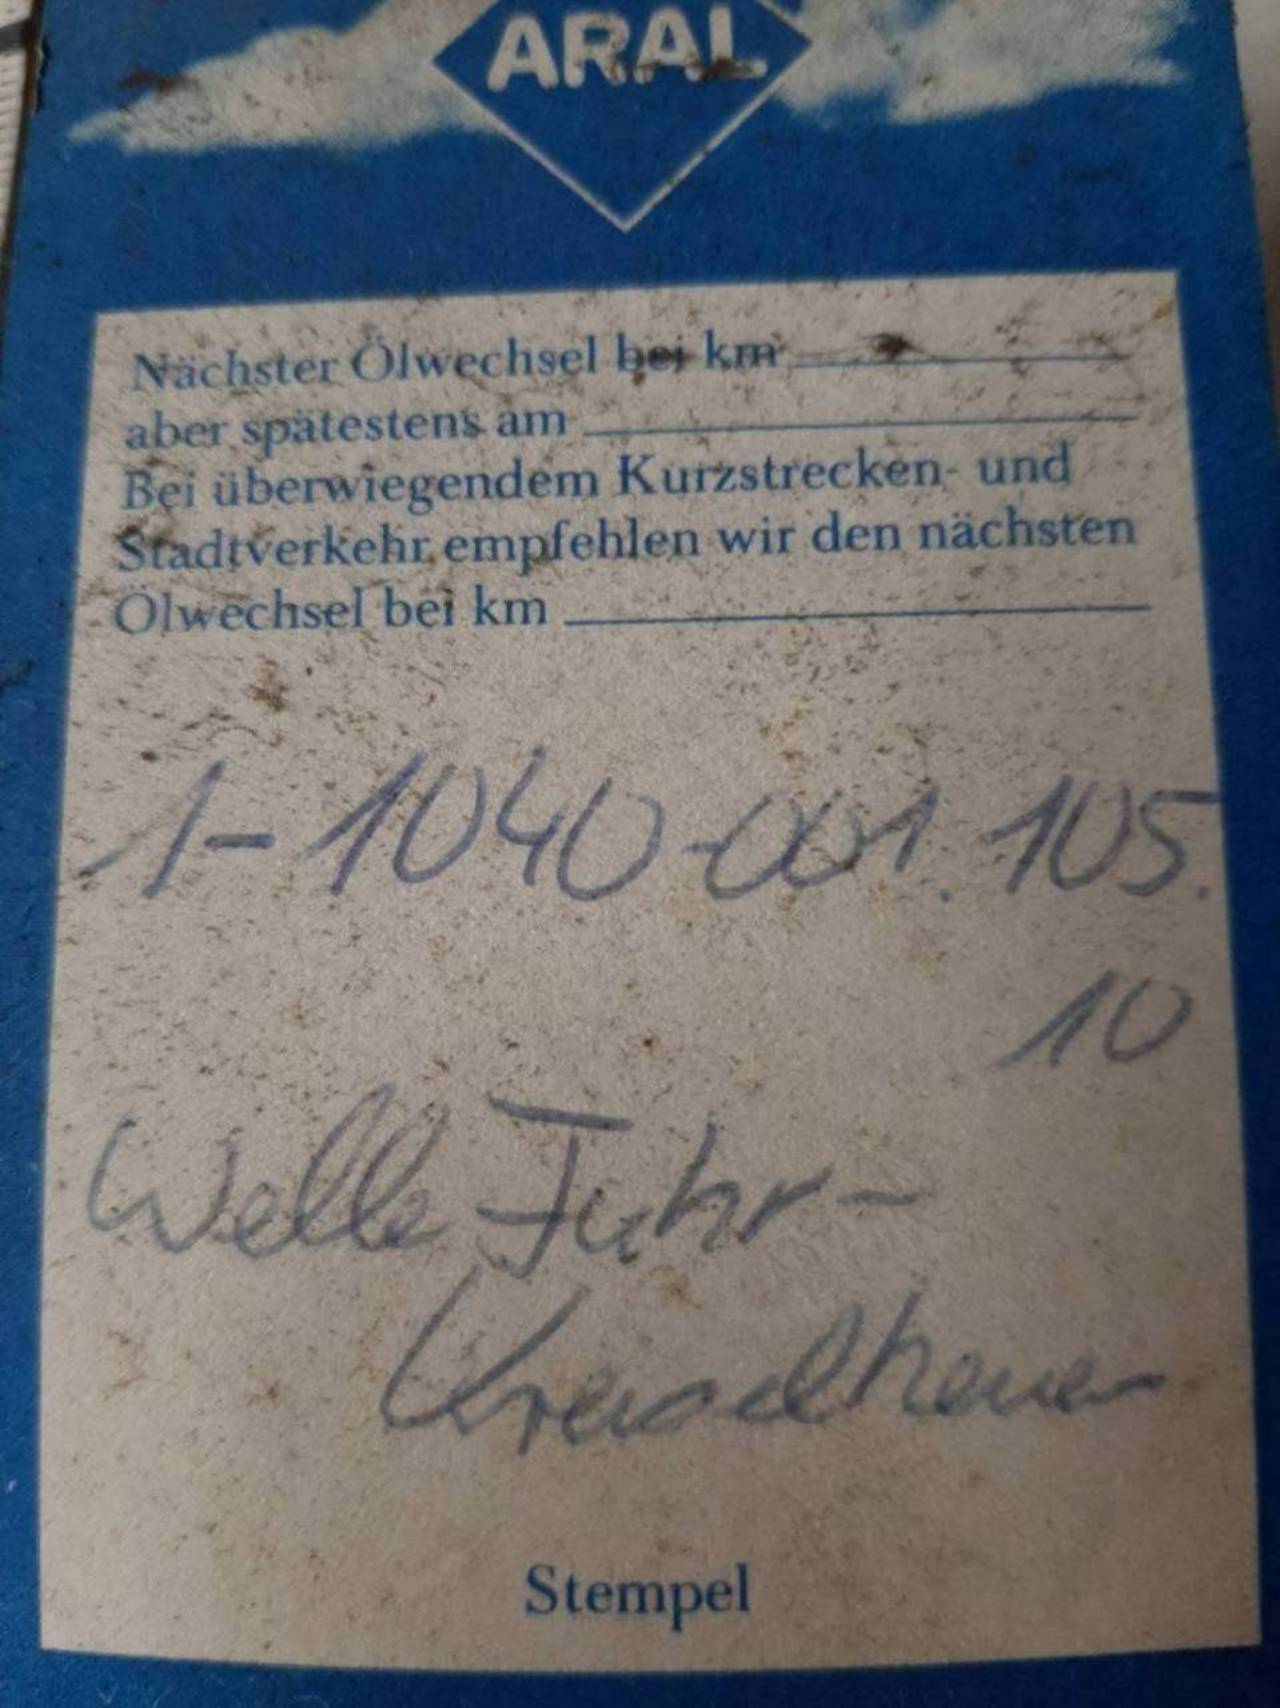 ARAL
Nächster Ölwechsel bei km
aber spätestens am
Bei überwiegendem Kurzstrecken- und
Stadtverkehr empfehlen wir den nächsten
Ölwechsel bei km
1-1040-001.105.
10
Welle Fuhr-
Kreiselheuer
Stempel